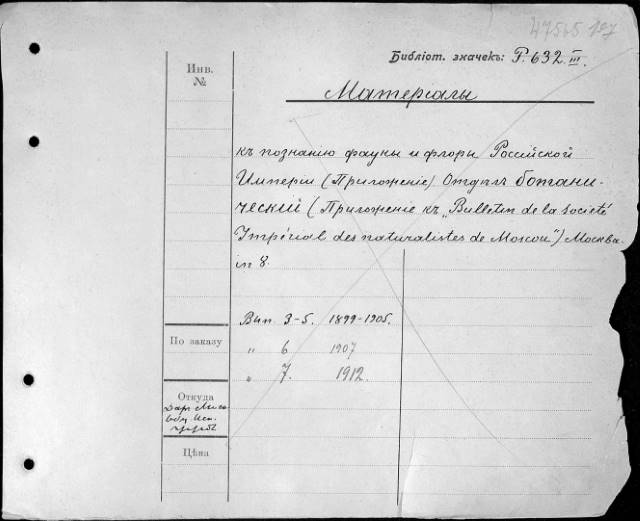 47565 197
Библіот. значекъ: P. 632 III.
Инв.
№
Матеріалы
къ познанію фауны и флоры Россійской
Имперіи (Приложеніе) Отдѣлъ ботани-
ческій (Приложеніе къ „Bulletin de la société
Impérial des naturalistes de Moscou") Москва.
in 8.
Вып. 3-5. 1899-1905.
По заказу
„ 6 1907
„ 7. 1912.
Откуда
Даръ Мос
Общ. Исп.
Цѣна